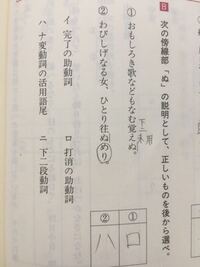 B 次の傍線部「ぬ」の説明として、正しいものを後から選べ。
① おもしろき歌などもなむ覚えぬ。
下二 未 用
② わびしげなる女、ひとり往ぬめり。
イ 完了の助動詞 ロ 打消の助動詞
ハ ナ変動詞の活用語尾 ニ 下二段動詞
① ロ
② ハ